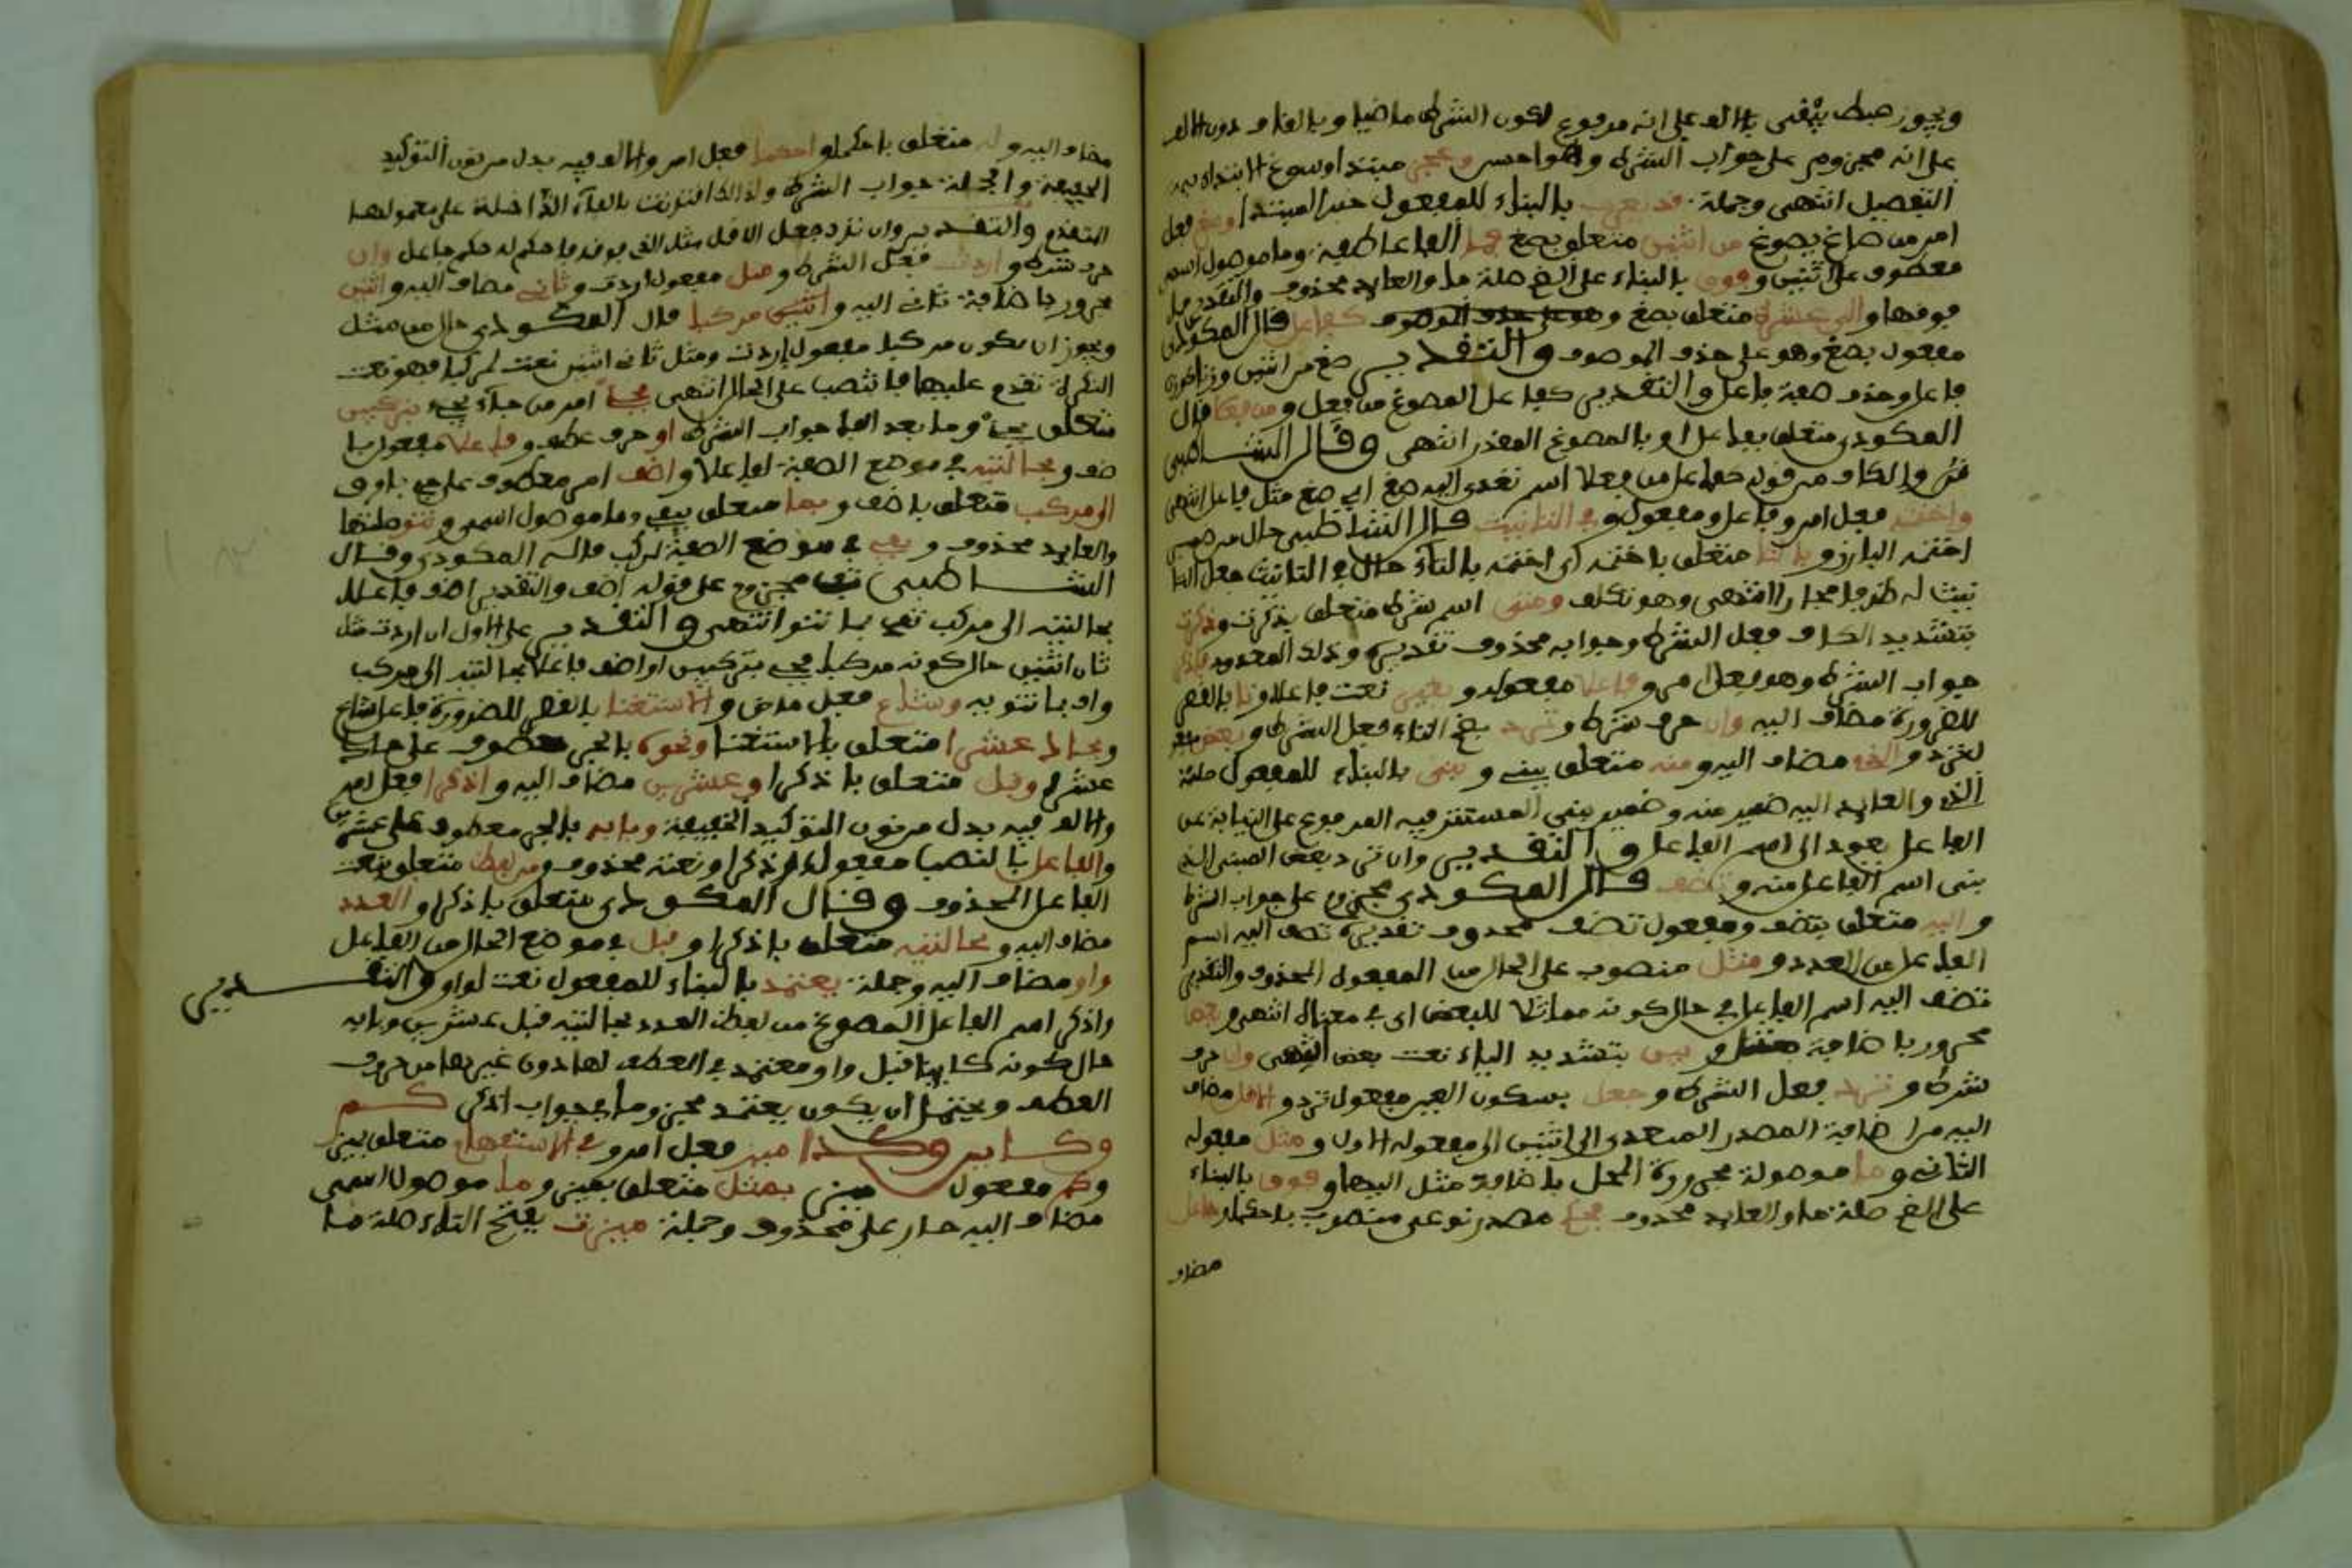 ويجوز ضبط يقفى بالالف على انه مرفوع لكون الشرط ماضيا وبالفاء دون الالف
على انه مجزوم على جواب الشرط وهو احسن و مبتدا وسوغ الابتداء به
التفصيل انتهى وجملة قد يعرف بالبناء للمفعول خبر المبتدا وصغ فعل
امر من صاغ يصوغ من اثنين متعلق بصغ فما الفاء عاطفة وما موصول اسمي
معطوف على اثنين وفوق بالبناء على الضم صلة ما والعايد محذوف والتقدير فما
فوقها والى عشرة متعلق بصغ كفاعل قال المكودي
مفعول بصغ وهو على حذف الموصوف والتقدير صغ من اثنين وزنا كوزن
فاعل وحذف صفة فاعل والتقدير كفاعل المصوغ من فعل ومن فعلا قال
المكودي متعلق بفاعل او بالمصوغ المقدر انتهى وقال الشاطبي
والكاف من قوله كفاعل من فعلا اسم تعدى اليه صغ اي صغ مثل فاعل انتهى
واختمه فعل امر وفاعل ومفعول وفي التانيث قال الشاطبي حال من ضمير
اختمه البارز وبالتا متعلق باختمه اي اختمه بالتاء حال في التانيث جعل التا
نيث له ظرفا مجازا انتهى وهو تكلف ومتى اسم شرط متعلق بذكرت وذكرت
بتشديد الكاف فعل الشرط وجوابه محذوف تقديره وذلك المعدود فاذكر
جواب الشرط وهو فعل امر وفاعلا مفعوله وبغير نعت فاعلا وتا بالقصر
للضرورة مضاف اليه وان حرف شرط وترد بضم التاء فعل الشرط وبعض مفعول
لترد والذي مضاف اليه ومنه متعلق ببني وبني بالبناء للمفعول صلة
الذي والعايد اليه ضمير منه وضمير بني المستتر فيه المرفوع على النيابة عن
الفاعل يعود الى اسم الفاعل والتقدير وان ترد بعض الشيء الذي
بني اسم الفاعل منه وتضف قال المكودي مجزوم على جواب الشرط
واليه متعلق بتضف ومفعول تضف محذوف تقديره تضف اليه اسم
الفاعل من العدد ومثل منصوب على الحال من المفعول المحذوف والتقدير
تضف اليه اسم الفاعل في حال كونه مماثلا للبعض اي في معناه انتهى وبعض
مجرور باضافة مثل وبين بتشديد الياء نعت بعض انتهى وان حرف
شرط وترد فعل الشرط وجعل بسكون العين مفعول ترد والاقل مضاف
اليه من اضافة المصدر المتعدي الى اثنين الى مفعوله الاول ومثل مفعوله
الثاني وما موصولة مجرورة المحل باضافة مثل اليها وفوق بالبناء
على الضم صلة ما والعايد محذوف فحكم مصدر نوعي منصوب باحكما وجاعل
مضاف
مضاف اليه وله متعلق باحكما واحكما فعل امر والالف فيه بدل من نون التوكيد
الخفيفة والجملة جواب الشرط ولذلك اقترنت بالفاء الداخلة على معمولها
المتقدم والتقدير وان ترد جعل الاقل مثل الذي فوقه فاحكم له حكم جاعل وان
حرف شرط واردت فعل الشرط ومثل مفعول اردت وثاني مضاف اليه واثنين
مجرور باضافة ثاني اليه واثنين مركبا قال المكودي حال من مثل
ويجوز ان يكون مركبا مفعول اردت ومثل ثاني اثنين نعت لمركبا فهو نعت
النكرة تقدم عليها فانتصب على الحال انتهى فجئ امر من جاء يجيء بتركيبين
متعلق بجئ وما بعد الفاء جواب الشرط او حرف عطف وفاعلا مفعول با
ضف وبحالتيه في موضع الصفة لفاعلا واضف امر معطوف على جئ باو و
الى مركب متعلق باضف وبما متعلق بيفي وما موصول اسمي وتنو صلتها
والعايد محذوف ويفي في موضع الصفة لمركب قاله المكودي وقال
الشاطبي يفي مجزوم على قوله اضف والتقدير اضف فاعلا
بحالتيه الى مركب تفي بما تنو انتهى والتقدير على الاول ان اردت مثل
ثاني اثنين حال كونه مركبا فجئ بتركيبين او اضف فاعلا بحالتيه الى مركب
واف بما تنويه وشاع فعل ماض والاستغنا بالقصر للضرورة فاعل شاع
وبحادي عشرا متعلق بالاستغنا ونحوه بالجر معطوف على حادي
عشرا وقبل متعلق باذكرا وعشرين مضاف اليه واذكرا فعل امر
والالف فيه بدل من نون التوكيد الخفيفة وبابه بالجر معطوف على عشرين
والفاعل بالنصب مفعول اذكرا ونعته محذوف ومن لفظ متعلق بنعت
الفاعل المحذوف وقال المكودي متعلق باذكرا والعدد
مضاف اليه وبحالتيه متعلق باذكرا وقبل في موضع الحال من الفاعل
واو مضاف اليه وجملة يعتمد بالبناء للمفعول نعت لواو والتقدير
واذكر اسم الفاعل المصوغ من لفظ العدد بحالتيه قبل عشرين وبابه
حال كونه كاينا قبل واو معتمد في العطف لها دون غيرها من حروف
العطف ويحتمل ان يكون يعتمد مجزوما في جواب اذكر كم
وكاين وكذا ميز فعل امر وفي الاستفهام متعلق بميز
وكم مفعول ميز بمثل متعلق بميز وما موصول اسمي
مضاف اليه جار على محذوف وجملة ميزت بفتح التاء صلة ما